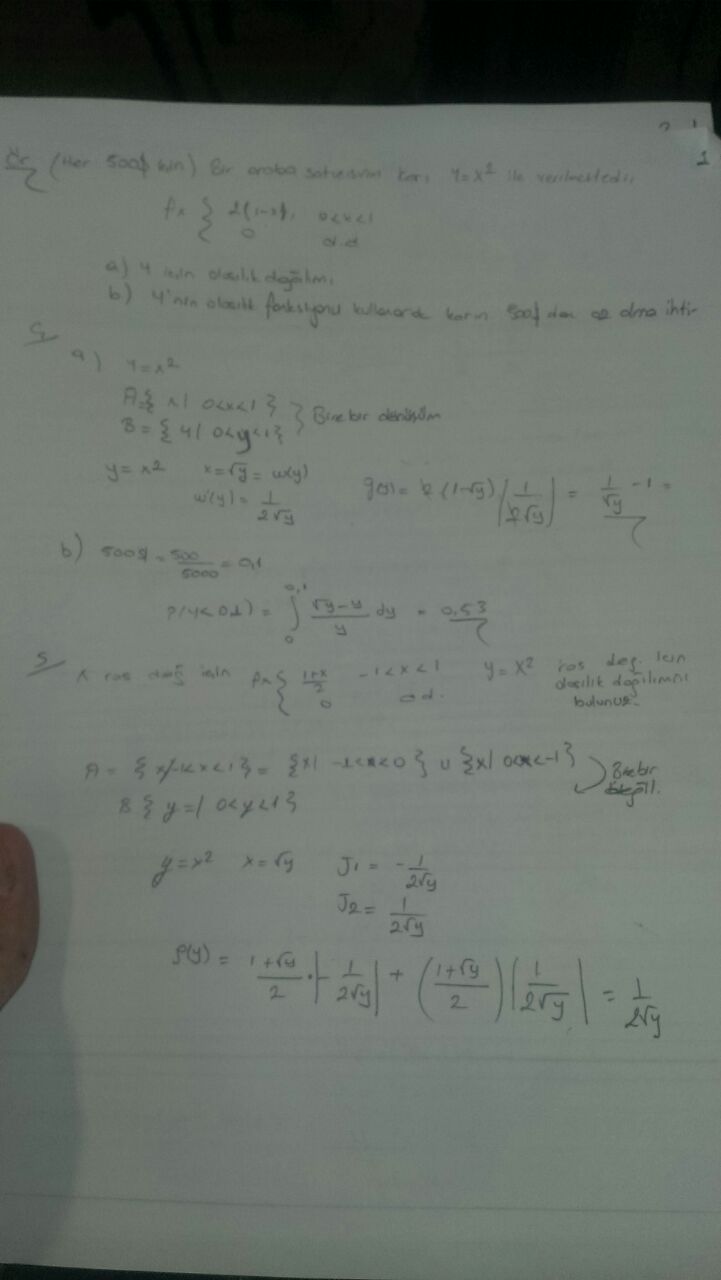 1
Ör (Her 500$ için) Bir araba satıcısının karı Y=x² ile verilmektedir
fx { 2(1-x), 0<x<1
0 d.d
a) Y için olasılık dağılımı
b) Y'nin olasılık fonksiyonu kullanarak karın 500$ dan az olma ihti-
Ç
a) Y=x²
A={ x| 0<x<1 } } Birebir dönüşüm
B={ y| 0<y<1}
y=x² x=√y = w(y)
w'(y)= 1/2√y g(y)= 2 (1-√y) |1/2√y| = 1/√y -1 =
b) 500$ = 500/5000 = 0,1
P(Y<0,1) = ∫₀^0,1 √y-y/y dy = 0,53
S X ras değ için fx { 1+x/2 -1<x<1 y=x² ras değ. için
0 o.d. olasılık dağılımını
bulunuz.
A= { x/-1<x<1} = {x| -1<x<0 } ∪ {x| 0<x<-1} Birebir
B { y=| 0<y<1} değil.
y=x² x=√y J1 = -1/2√y
J2= 1/2√y
f(y) = 1+√y/2 · |-1/2√y| + (1+√y/2) |1/2√y| = 1/2√y